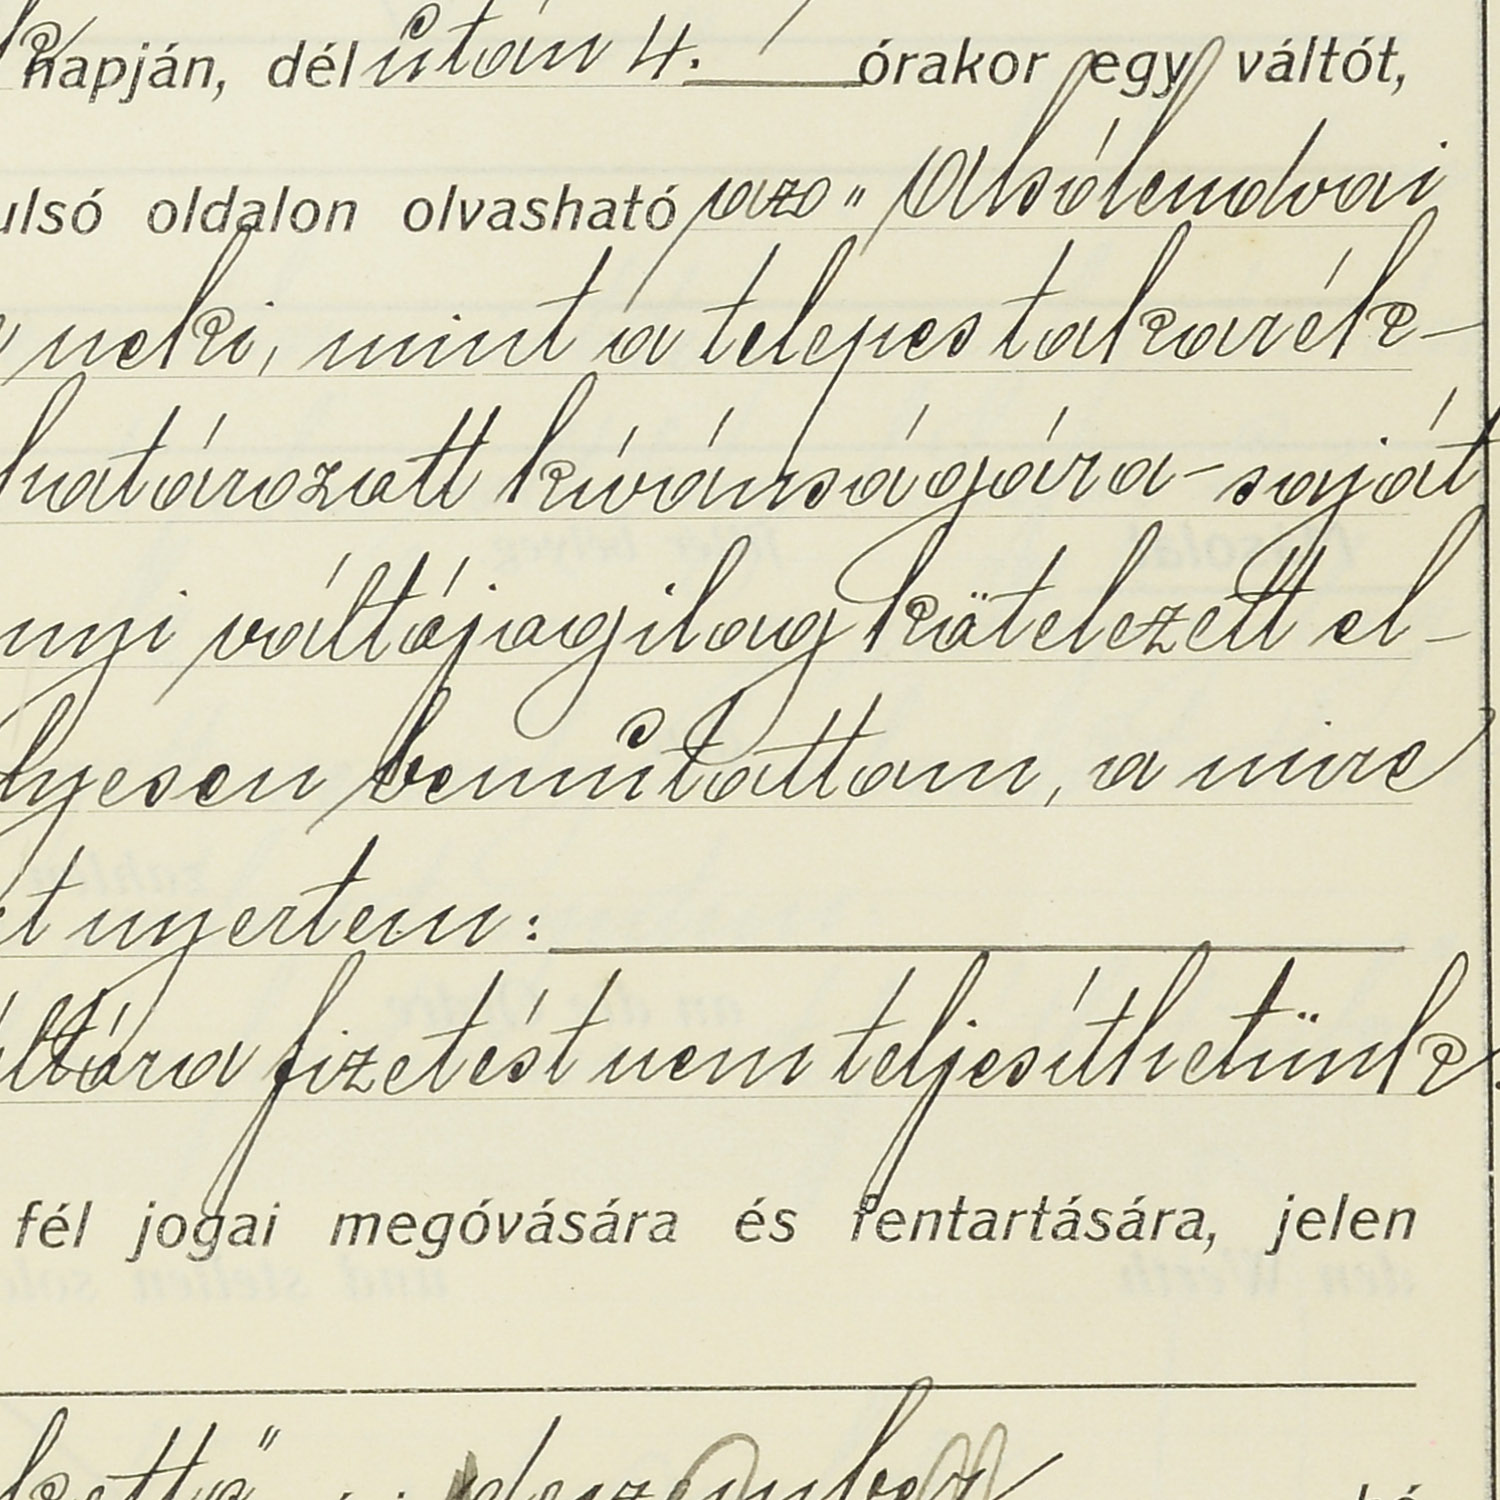 napján, délután 4. órakor egy váltót,
ulsó oldalon olvasható az „Alsólendvai
neki, mint a telepes takarék-
határozott kívánságára - saját
nyi váltójogilag kötelezett el-
lyesen bemutattam, a mire
t nyertem:
ltóra fizetést nem teljesíthetünk.
fél jogai megóvására és fentartására, jelen
kettő" deczember hó